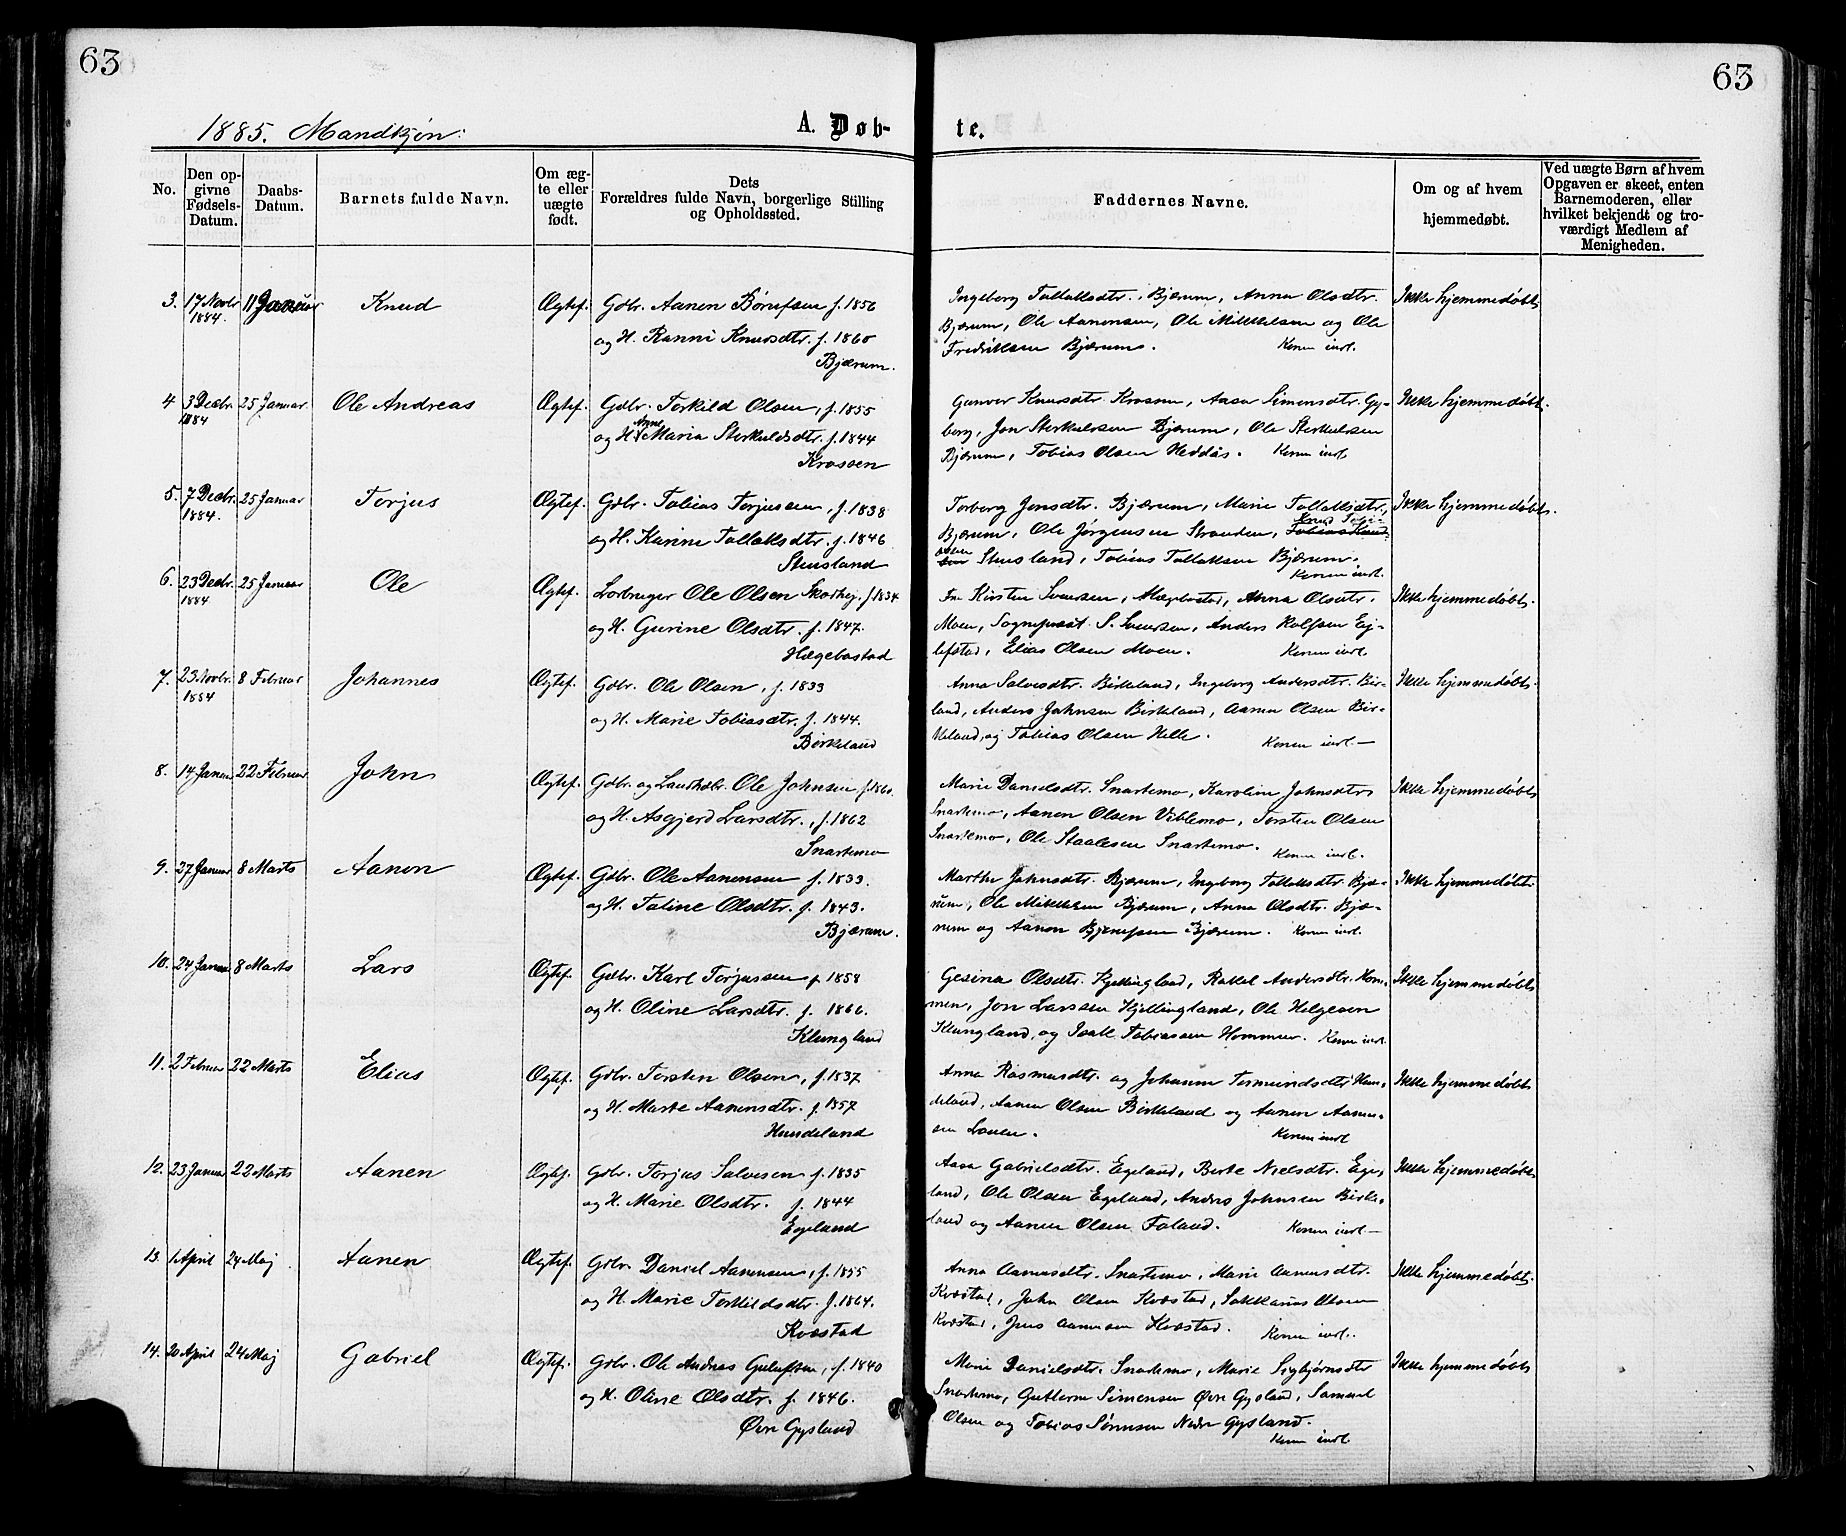 63
63
1885. Mandkjøn:
A. Døb-
te.
No.
Den op-
givne
Fødsels-
Datum.
Daabs-
Datum.
Barnets fulde Navn.
Om æg-
te eller
uægte
født.
Dets
Forældres fulde Navn, borgerlige Stilling
og Opholdssted.
Faddernes Navne.
Om og af hvem
hjemmedøbt.
Ved uægte Børn af hvem
Opgaven er skeet, enten
Barnemoderen, eller
hvilket bekjendt og tro-
værdigt Medlem af
Menigheden.
3. 17 Novbr 1884. 11 Januar Knud Ægtef.
Gdbr. Aanen Børufsen f. 1856
og H. Ranni Knudsdtr. f. 1860
Bjærum.
Ingeborg Tallaksdtr. Bjærum, Anna Olsdtr.
Bjærum, Ole Aanensen, Ole Mikkelsen og Ole
Fredriksen Bjærum. Konen indl.
Ikke hjemmedøbt
4 3 Decbr. 1884 25 Januar Ole Andreas Ægtef.
Gdbr. Torkild Olsen, f. 1855
og H. Anne Maria Sterkuldsdtr. f. 1844
Krossen
Gunvor Knudsdtr Krossen, Aasa Simensdtr. Gy-
berg, Jon Sterkulsen Bjærum, Ole Sterkulsen
Bjærum, Tobias Olsen Heddås. Konen indl
Ikke hjemmedøbt.
5. 7 Decbr. 1884. 25 Januar Torjus Ægtef.
Gdbr. Tobias Torjussen, f. 1838
og H. Karine Tallaksdtr. f. 1846
Stensland
Torborg Jonsdtr. Bjærum, Marie Tallaksdtr,
Bjærum, Ole Jørgensen Stranden, Knud Tobi-
Stensland, Tobias Tallaksen Bjærum.
Konen indl.
Ikke hjemmedøbt.
6. 23 Decbr. 1884 25 Januar Ole Ægtef.
Ole Olsen f. 1834
og H. Gurine Olsdtr. f. 1847.
Hægebostad
Kirsten Svensen, Hægebostad, Anna Olsdtr.
Moen, Sogneprest S. Svensen, Anders Rolfsen Ei-
lefstad, Elias Olsen Moen. Konen indl.
Ikke hjemmedøbt.
7. 23 Novbr. 1884 8 Februar Johannes Ægtef.
Gdbr. Ole Olsen, f. 1833
og H. Marie Tobiasdtr. f. 1844.
Birkeland
Anna Salvesdtr. Birkeland, Ingeborg Andersdtr. Bir-
land, Anders Johnsen Birkeland, Aanen Olsen Bir-
keland, og Tobias Olsen Helle. Konen indl.—
Ikke hjemmedøbt.
8. 14 Januar 22 Februar John Ægtef.
Gdbr. og Landhdlr. Ole Johnsen f. 1860.
og H. Asgjerd Larsdtr., f. 1862
Snartemo
Marie Danielsdtr. Snartemo, Karoline Johnsdtr
Snartemo, Aanen Olsen Viblemo, Torsten Olsen
Snartemo, Ole Staalesen Snartemo. Konen indl.
Ikke hjemmedøbt
9. 27 Januar 8 Marts Aanon Ægtef.
Gdbr. Ole Aanensen f. 1833.
og H. Taline Olsdtr. f. 1843.
Bjærum.
Marthe Johnsdtr. Bjærum, Ingeborg Tallaksdtr. Bjæ-
rum, Ole Mikkelsen Bjærum, Anna Olsdtr. Bjæ-
rum og Aanon Bjørufsen Bjærum. Konen indl.
Ikke hjemmedøbt.
10. 24 Januar 8 Marts Lars Ægtef.
Gdbr. Karl Torjussen f. 1858
og H. Oline Larsdtr. f. 1866.
Klungland
Gesina Olsdtr. Kjellingland, Rakel Andersdtr. Hom-
men, Jon Larssen Kjellingland, Ole Helgesen
Klungland, og Isak Tobiassen Hommen. Konen indl.
Ikke hjemmedøbt
11. 2 Februar 22 Marts Elias Ægtef.
Gdbr. Torsten Olsen, f. 1837
og H. Marte Aanensdtr. f. 1857
Hundeland
Anna Rasmusdtr. og Johanne Tormundsdtr Hun-
deland, Aanen Olsen Birkeland og Aanen Aanen-
sen Lauen. Konen indl
Ikke hjemmedøbt
12. 23 Januar 22 Marts Aanen Ægtef.
Gdbr. Torjus Salvesen f. 1835
og H. Marie Olsdtr. f. 1844
Egeland
Aasa Gabrielsdtr. Egeland, Berte Nielsdtr. Ege-
land, Ole Olsen Egeland, Anders Johnsen Birke-
land og Aanen Olsen Faland. Konen indl.—
Ikke hjemmedøbt
13. 1 April 24 Maj Aanen Ægtef.
Gdbr. Daniel Aanensen, f. 1855
og H. Marie Torkildsdtr. f. 1864.
Kvåstad
Anna Aanensdtr. Snartemo, Marie Aanensdtr.
Kvåstad, John Olsen Kvåstad, Sakkarias Olsen
Kvåstad, Jens Aanensen Kvåstad. Konen indl.
Ikke hjemmedøbt.
14. 20 April 24 Maj Gabriel Ægtef.
Gdbr. Ole Andreas Gulufsen, f. 1840
og H. Oline Olsdtr. f. 1846.
Øvre Gysland
Marie Danielsdtr. Snartemo, Marie Sigbjørnsdtr
Snartemo, Guttorm Simensen Øvre Gysland, Samuel
Olsen og Tobias Sørensen Nedre Gysland.
Konen indl.
Ikke hjemmedøbt